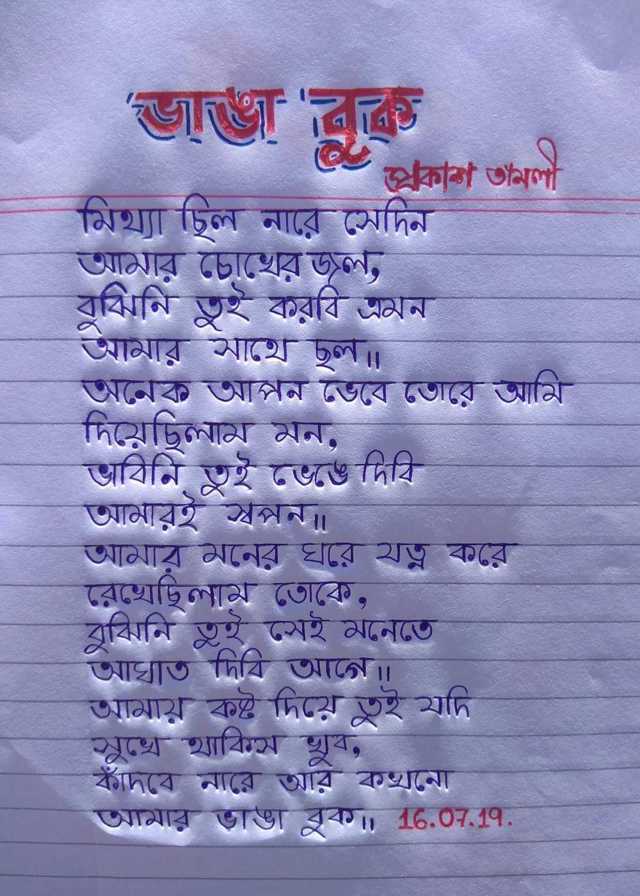 ভাঙা বুক
প্রকাশ তামলী
মিথ্যা ছিল নারে সেদিন
আমার চোখের জল,
বুঝিনি তুই করবি এমন
আমার সাথে ছল৷৷
অনেক আপন ভেবে তোরে আমি
দিয়েছিলাম মন,
ভাবিনি তুই ভেঙে দিবি
আমারই স্বপন৷৷
আমার মনের ঘরে যত্ন করে
রেখেছিলাম তোকে,
বুঝিনি তুই সেই মনেতে
আঘাত দিবি আগে৷৷
আমায় কষ্ট দিয়ে তুই যদি
সুখে থাকিস খুব,
কাঁদবে নারে আর কখনো
আমার ভাঙা বুক৷৷ 16.07.19.